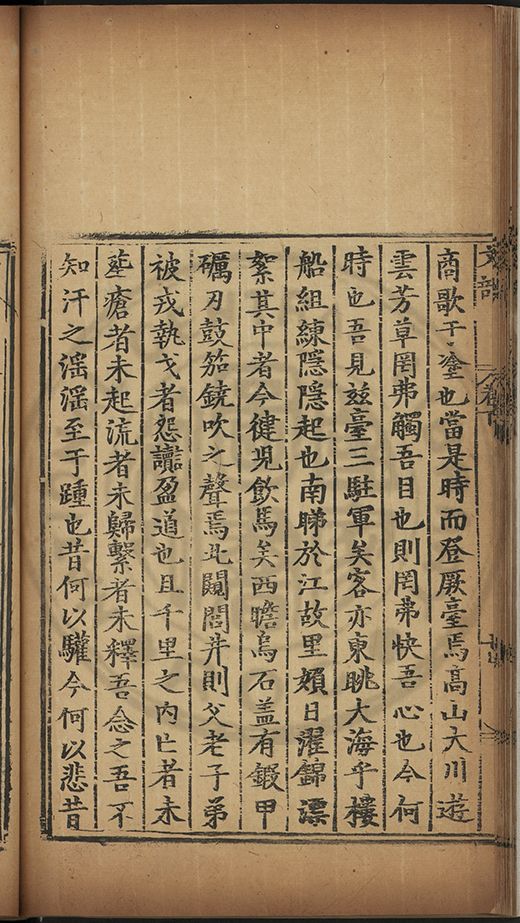 商歌于塗也當是時而登厥臺焉髙山大川遊
雲芳草罔弗觸吾目也則罔弗快吾心也今何
時也吾見玆臺三駐軍矣客亦東眺大海乎樓
船組練隱隱起也南睇於江故里媍日濯錦漂
絮其中者今健児飲馬矣西瞻烏石盖有鍛甲
礪刃鼓笳鐃吹之聲焉北闞閭井則父老子弟
被戎執戈者怨讟盈道也且千里之內亡者未
塟瘡者未起流者未歸繫者未釋吾念之吾不
知汗之滛滛至于踵也昔何以驩今何以悲昔
文部